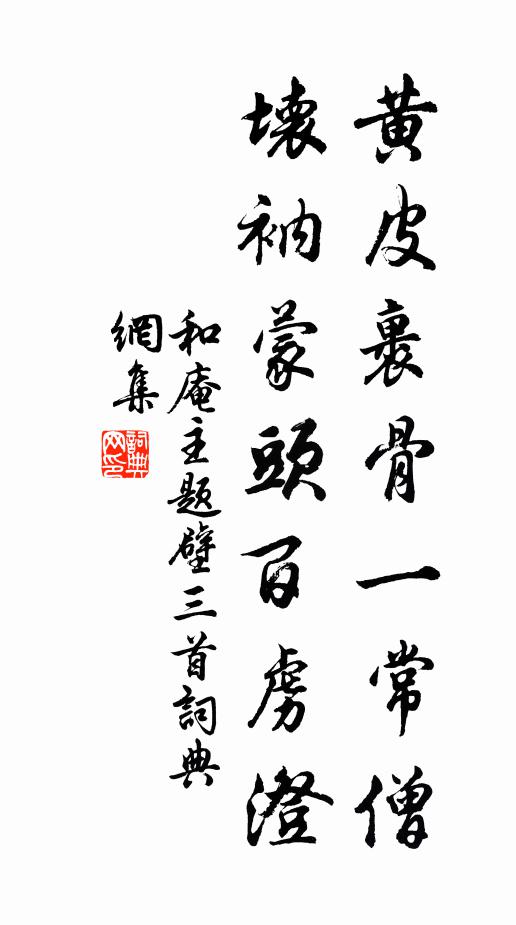 黃皮裹骨一常僧
壞衲蒙頭百虜澄
和庵主題壁三首詞典
網集
詞典
网印